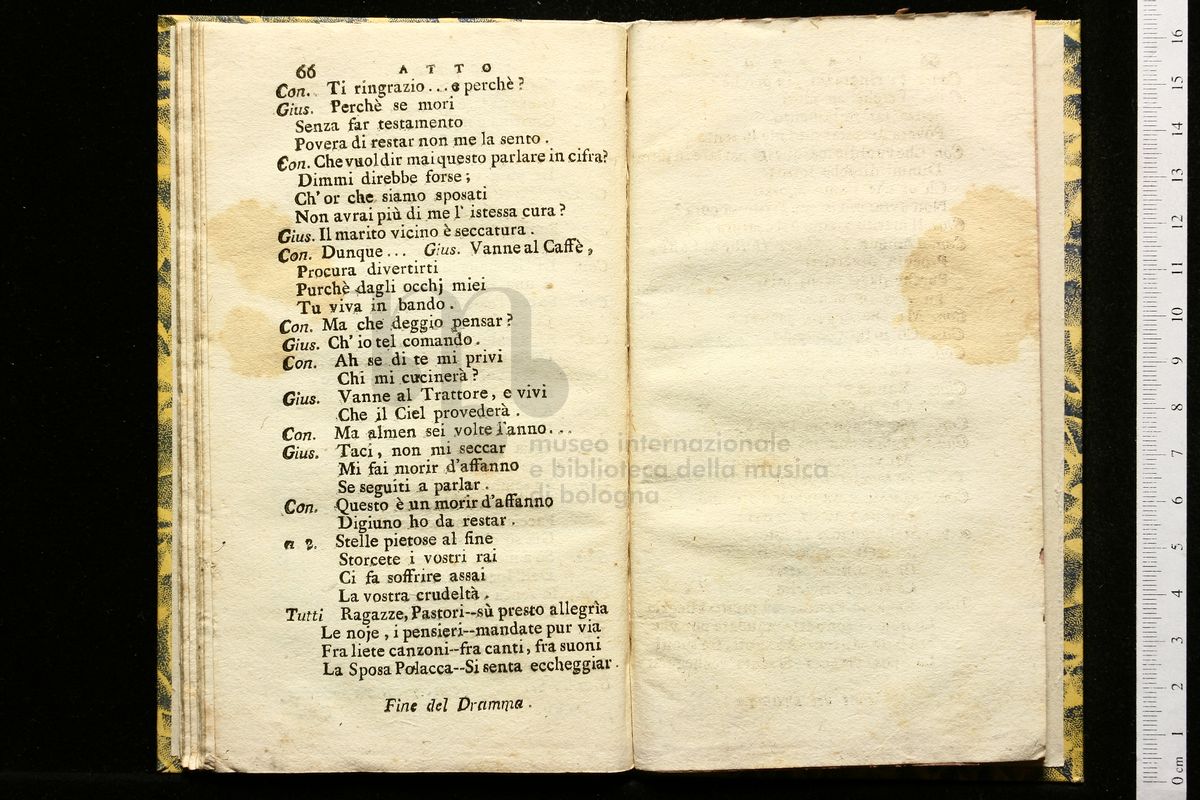 66 ATTO
Con. Ti ringrazio... e perchè?
Gius. Perchè se mori
Senza far testamento
Povera di restar non me la sento.
Con. Che vuol dir mai questo parlare in cifra?
Dimmi direbbe forse;
Ch' or che siamo sposati
Non avrai più di me l' istessa cura?
Gius. Il marito vicino è seccatura.
Con. Dunque... Gius. Vanne al Caffè,
Procura divertirti
Purchè dagli occhj miei
Tu viva in bando.
Con. Ma che deggio pensar?
Gius. Ch' io tel comando.
Con. Ah se di te mi privi
Chi mi cucinerà?
Gius. Vanne al Trattore, e vivi
Che il Ciel provederà.
Con. Ma almen sei volte l'anno...
Gius. Taci, non mi seccar
Mi fai morir d'affanno
Se seguiti a parlar.
Con. Questo è un morir d'affanno
Digiuno ho da restar.
a 2. Stelle pietose al fine
Storcete i vostri rai
Ci fa soffrire assai
La vostra crudeltà.
Tutti Ragazze, Pastori--sù presto allegrìa
Le noje, i pensieri--mandate pur via
Fra liete canzoni--fra canti, fra suoni
La Sposa Polacca--Si senta eccheggiar.
Fine del Dramma.
museo internazionale
e biblioteca della musica
di bologna
0 cm 1 2 3 4 5 6 7 8 9 10 11 12 13 14 15 16